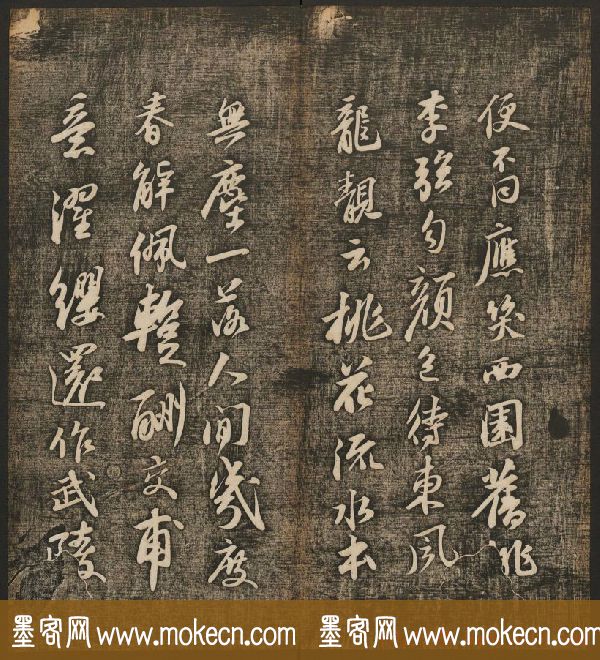 便不同應笑西園舊桃
李強勻顏色待東風
龍靚云桃花流水本
無塵一落人間幾度
春解佩暫酬交甫
意濯纓還作武陵
墨客网 www.mokecn.com 墨客网 www.mokecn.com